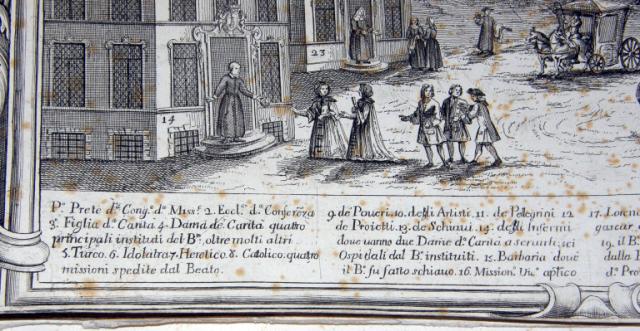 23
14
Pº Prete dª Congⁿ dª Missª 2. Eccl.º dª Conferēza
3. Figlia dª Carita 4. Dama dª Carita quattro
principali instituti del Bº, oltre molti altri
5. Turco. 6. Idolatra 7. Heretico. 8. Catolico. quattro
missioni spedite dal Beato.
9 de Poueri. 10. degli Artisti. 11. de Pelegrini 12
de Proietti. 13. de Schiaui. 14. degli Infermi
doue uanno due Dame dª Carita a seruitu, sei
Ospitali dal Bº instituiti. 15. Barbaria doue
il Bº fu fatto schiauo. 16. Missionº
17. Loren
gascar
19. il B
dalla
dª Pr